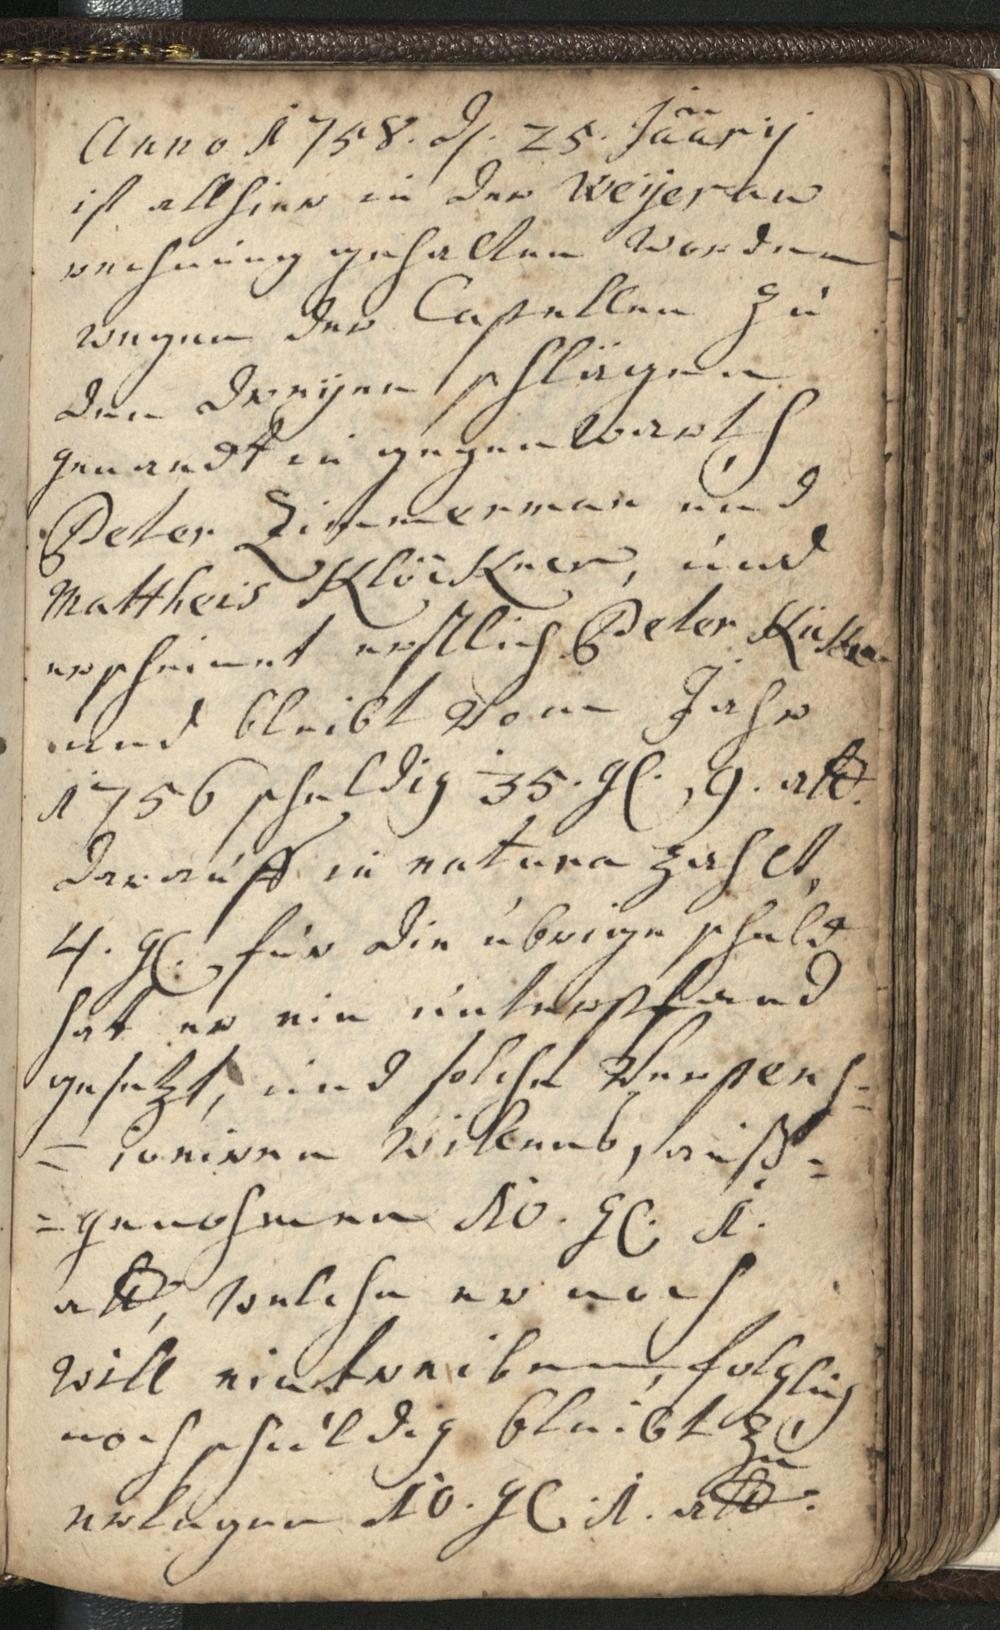 Anno 1758. d. 25. Jäärij
ist allhier in der Weijeraw
rechnung gehalten worden
wegen der Capellen zu
den dreyen schlägen
genandt in gegenwarth
Peter Zimmerman und
Mattheis Klöckner, und
erscheinet erstlich Peter
und bleibt vom Jahr
1756 schuldig 35. gl. 9. alb.
darauff in natura zahlt,
4. gl. für die übrige schuld
hat er ein unterpfand
gesetzt, und solche verpens=
= ioniren willens, auß=
=genohmen 10. gl. 1.
alb, welche er noch
will eintreiben, folglich
noch schuldig bleibt zu
erlegen 10. gl. 1. alb.